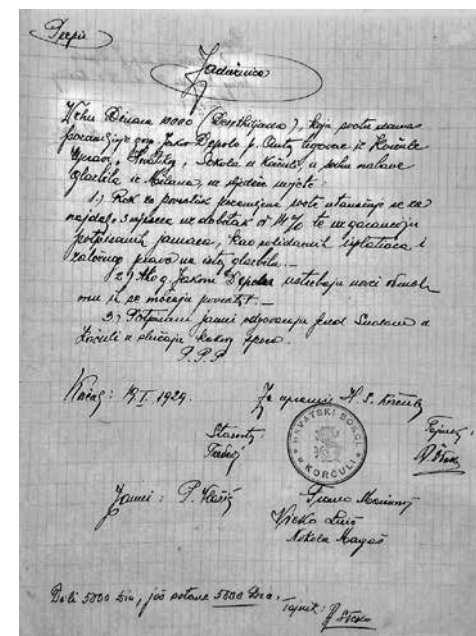 Prepis
Zadužnica
Dinara 10000 (Desethiljada), koju svotu danas
pozajmljuje gosp. Jakov Depolo p. trgovac iz Korčule
Upravi, Sokola u Korčuli, u svrhu nabave
glazbila iz Milana, uz sljedeće uvjete:
1.) Rok za povratak pozajmljene svote ustanovljuje se na
najdalje 3 mjeseca uz dobitak od 14% te uz garanciju
potpisanih jamaca, kao solidarnih isplatioca i
založnog prava na istoj glazbili. —
2.) Ako g. Jakovu Depolu ustrebaju novci odmah
mu ih se moraju povratiti. —
3.) Potpisani jamci odgovaraju pred Sudom u
Korčuli u slučaju kakvog spora.
P.P.P
19.I.1929. Za upravu H. S. Korčula
Starosta: Tajnik:
HRVATSKI SOKOL
KORČULI
Jamci: P.
Vicko
Nikola
Dali 5000 Din, još ostane 5000 Din. Tajnik: